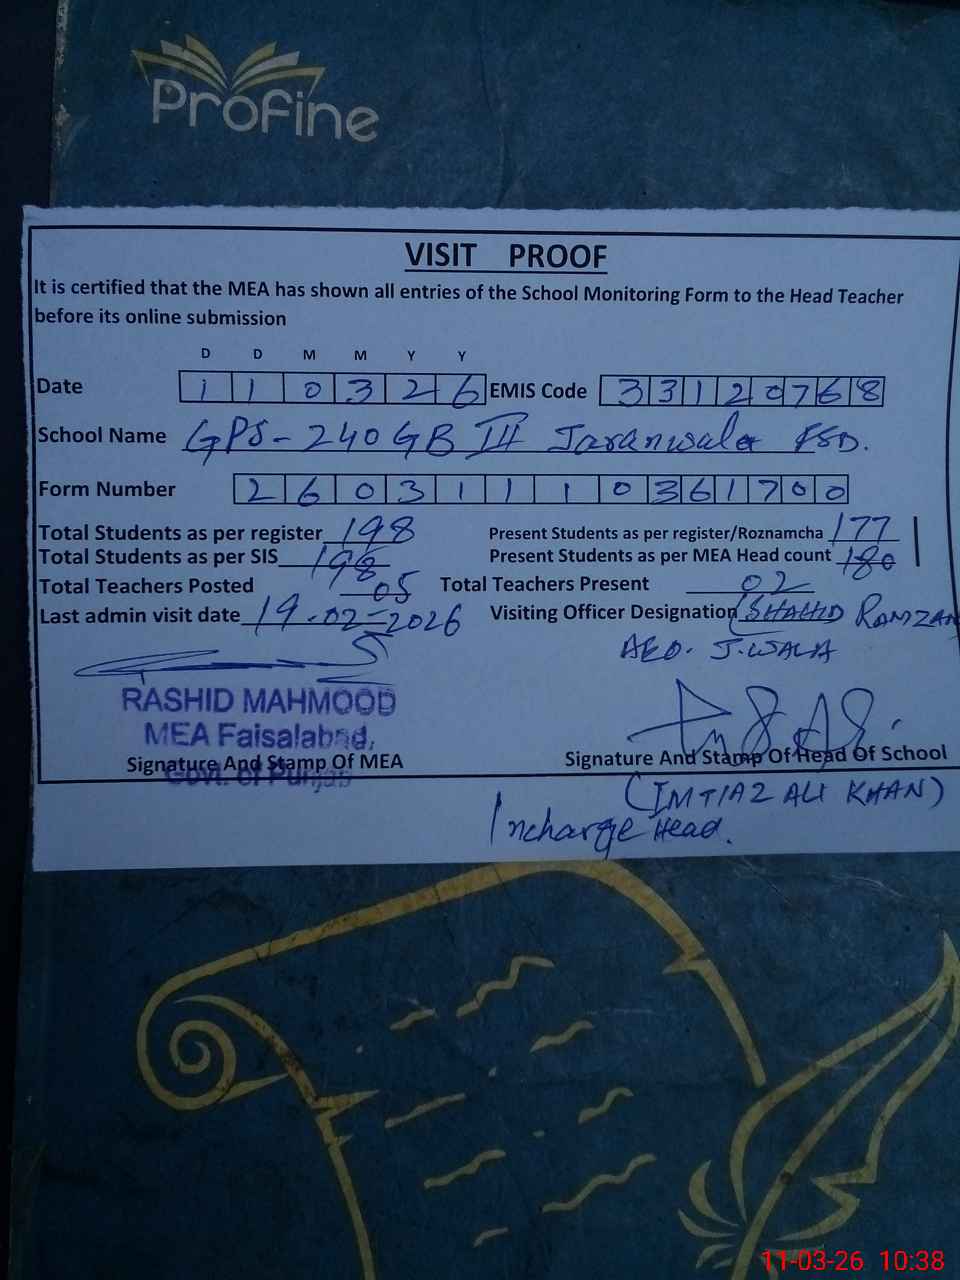 Profine
VISIT PROOF
It is certified that the MEA has shown all entries of the School Monitoring Form to the Head Teacher
before its online submission
D D M M Y Y
Date 1 1 0 3 2 6 EMIS Code 3 3 1 2 0 7 6 8
School Name GPS-240 GB III Jaranwala FSD.
Form Number 2 6 0 3 1 1 1 0 3 6 1 7 0 0
Total Students as per register 198 Present Students as per register/Roznamcha 177
Total Students as per SIS 198 Present Students as per MEA Head count 180
Total Teachers Posted 05 Total Teachers Present 02
Last admin visit date 19-02-2026 Visiting Officer Designation (SHAHID RAMZAN
AEO. J.WALA
RASHID MAHMOOD
MEA Faisalabad,
Signature And Stamp Of MEA Signature And Stamp Of Head Of School
Govt. of Punjab
(IMTIAZ ALI KHAN)
Incharge Head.
11-03-26 10:38